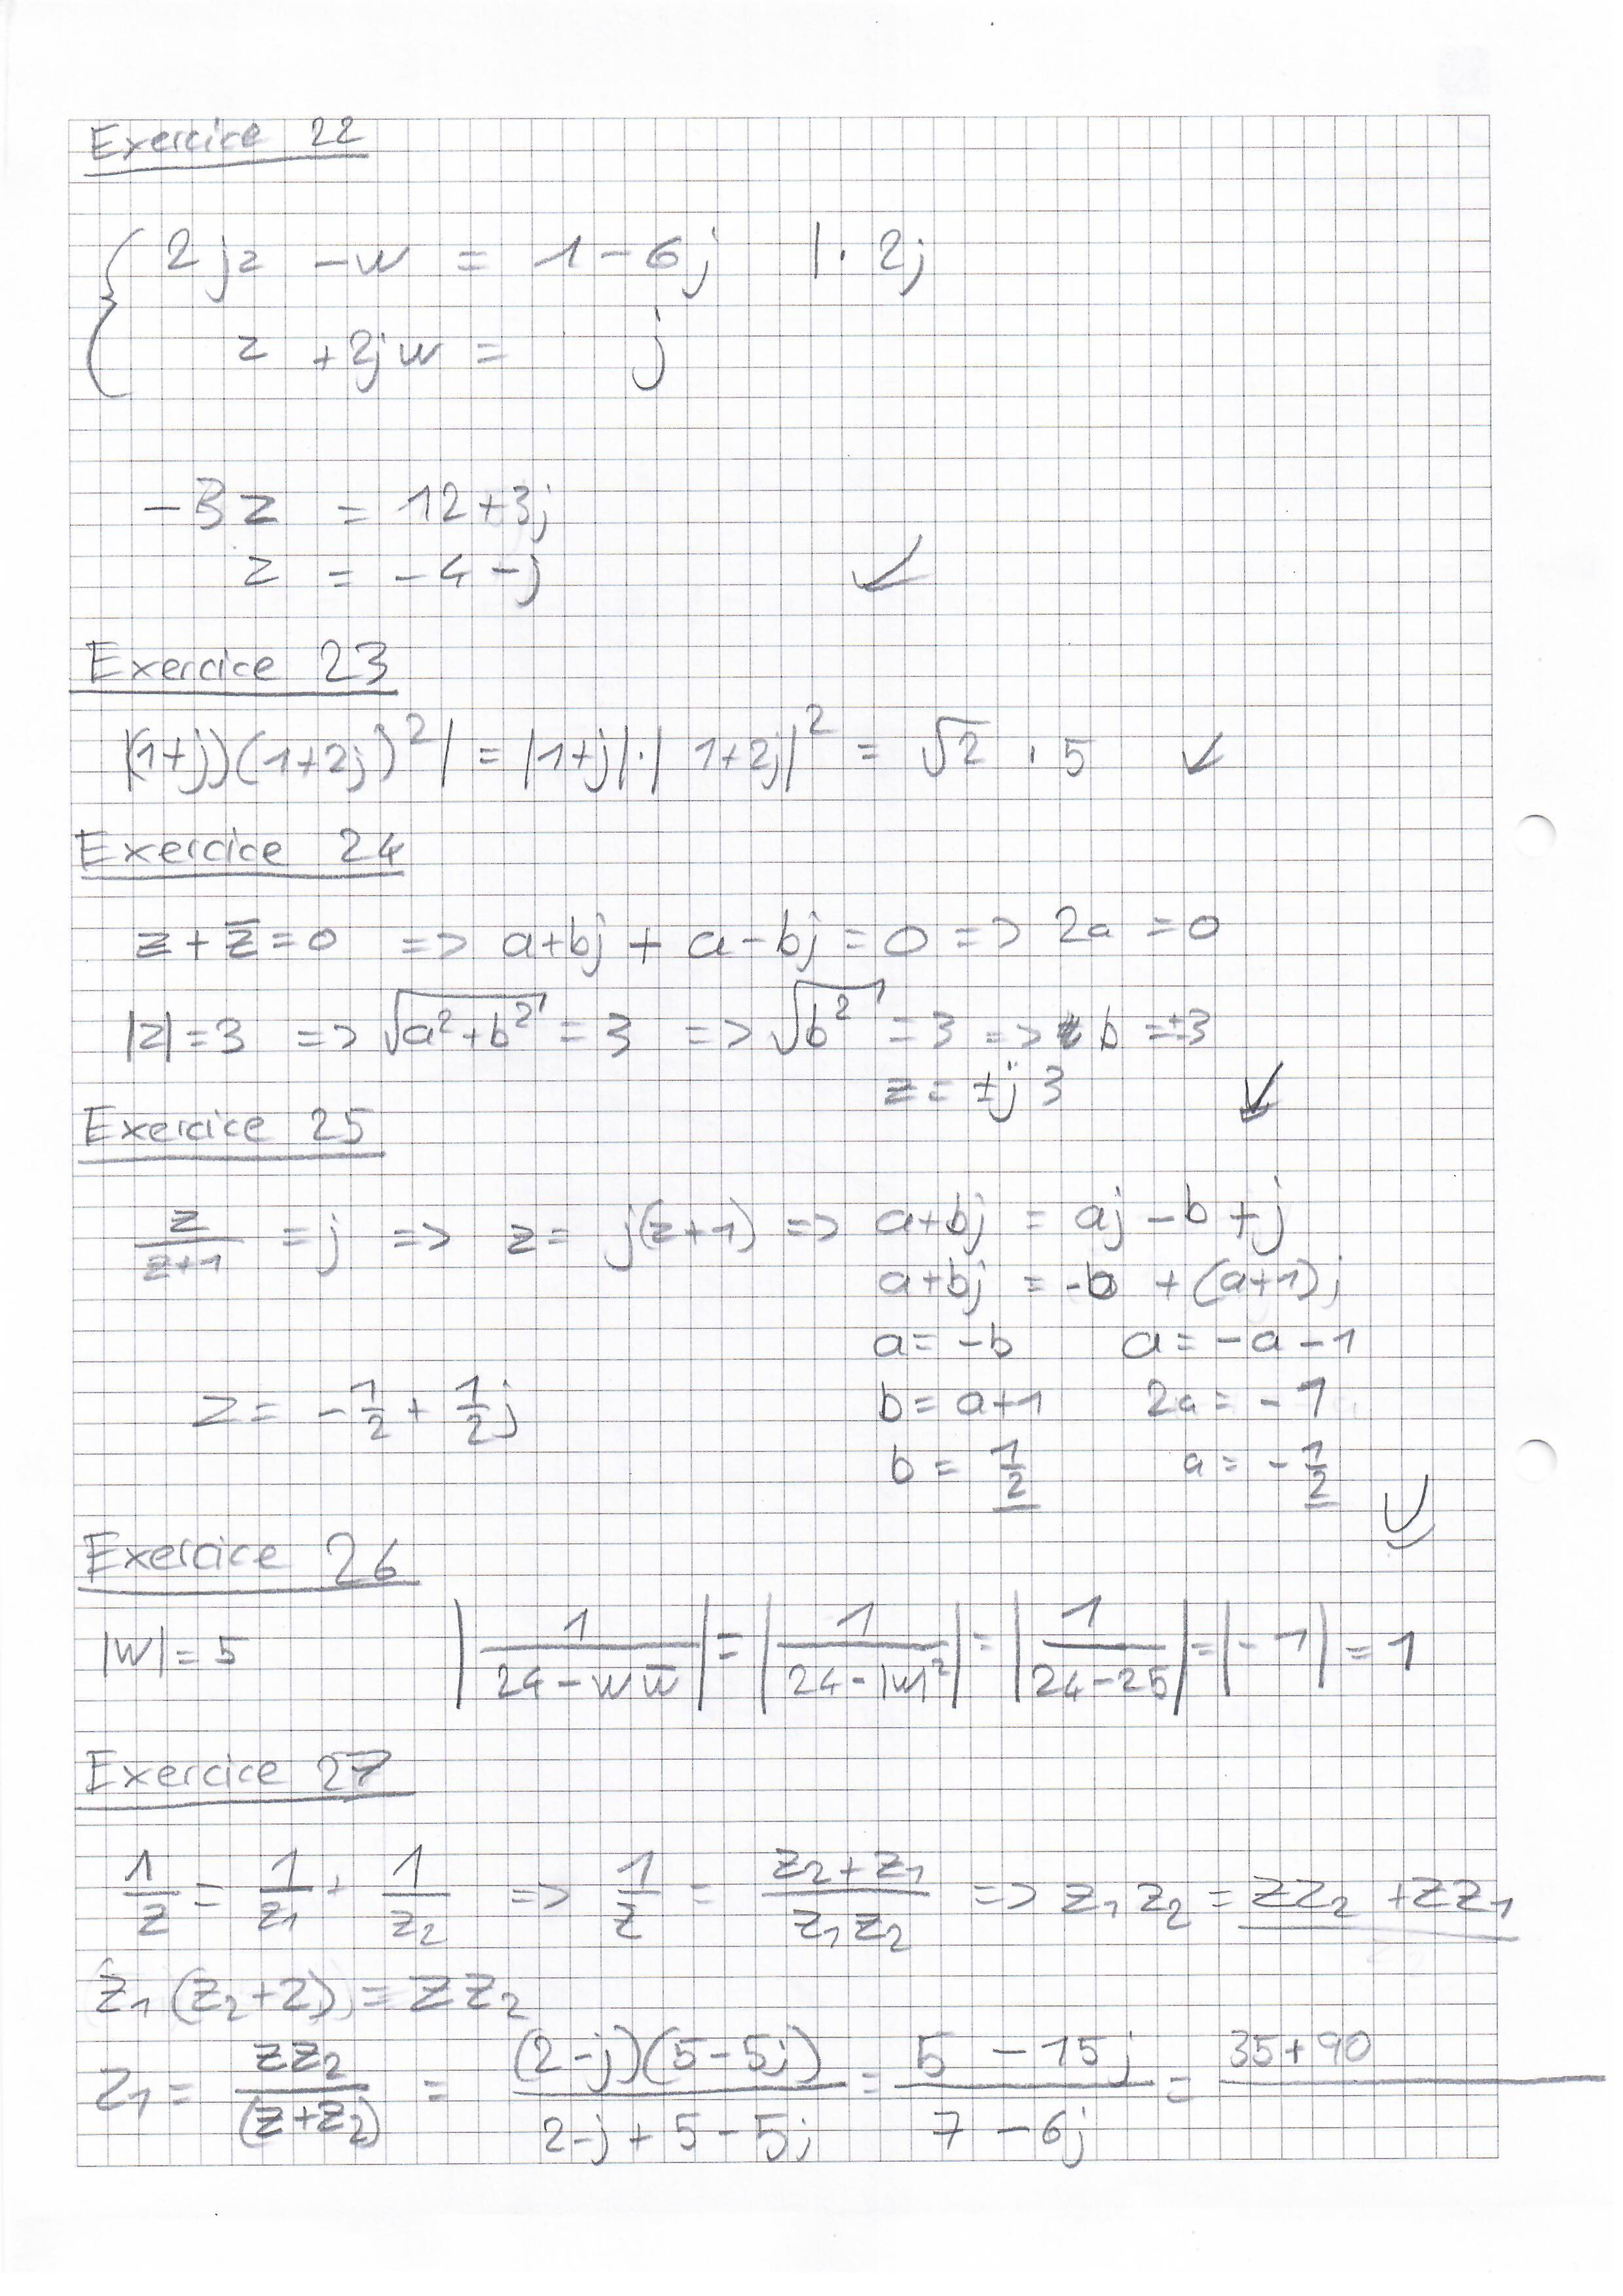 Exercice 22
2jz - w = 1 - 6j |· 2j
z + 2jw = j
-3z = 12 + 3j
z = -4 - j ✓
Exercice 23
|(1+j)(1+2j)²| = |1+j|·|1+2j|² = √2 · 5 ✓
Exercice 24
z + z̄ = 0 => a+bj + a-bj = 0 => 2a = 0
|z| = 3 => √(a²+b²) = 3 => √(b²) = 3 => b = ±3
z = ±j 3 ✓
Exercice 25
z/(z+1) = j => z = j(z+1) => a+bj = aj - b + j
a+bj = -b + (a+1)j
a = -b a = -a - 1
z = -1/2 + 1/2 j b = a+1 2a = -1
b = 1/2 a = -1/2
Exercice 26
|w| = 5 |1/(24 - w w̄)| = |1/(24 - |w|²)| = |1/(24-25)| = |-1| = 1
Exercice 27
1/z = 1/z₁ + 1/z₂ => 1/z = (z₂+z₁)/(z₁z₂) => z₁z₂ = zz₂ + zz₁
z₁(z₂+z) = zz₂
z₁ = zz₂/(z+z₂) = (2-j)(5-5j)/(2-j+5-5j) = (5 - 15j)/(7 - 6j) = 35+90